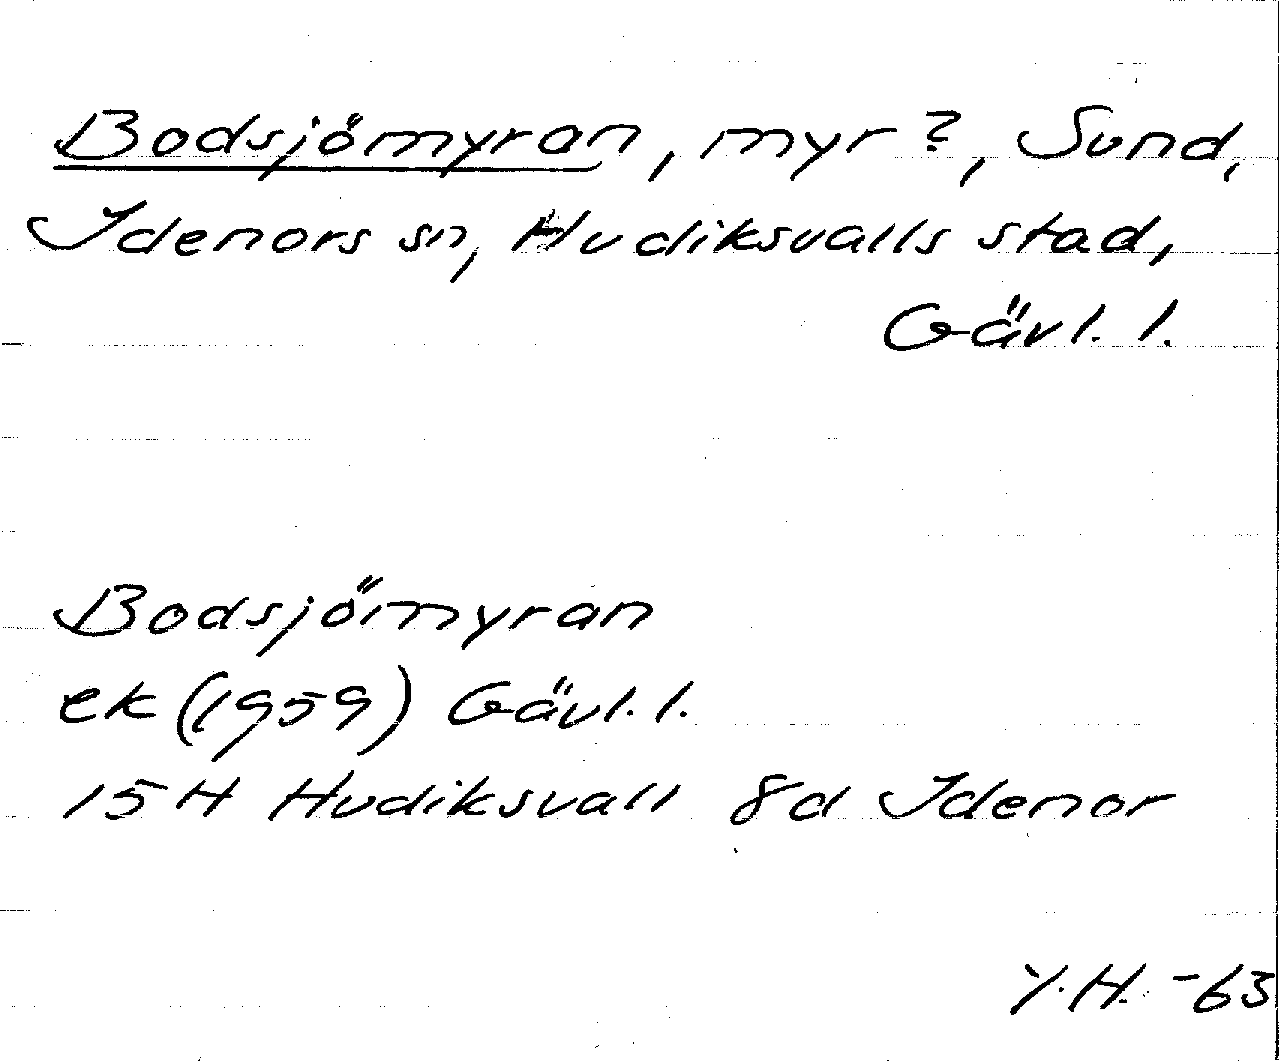 Bodsjömyran, myr?, Sund,
Idenors sn, Hudiksvalls stad,
Gävl. l.
Bodsjömyran
ek (1959) Gävl. l.
15H Hudiksvall 8d Idenor
Y.H. -63